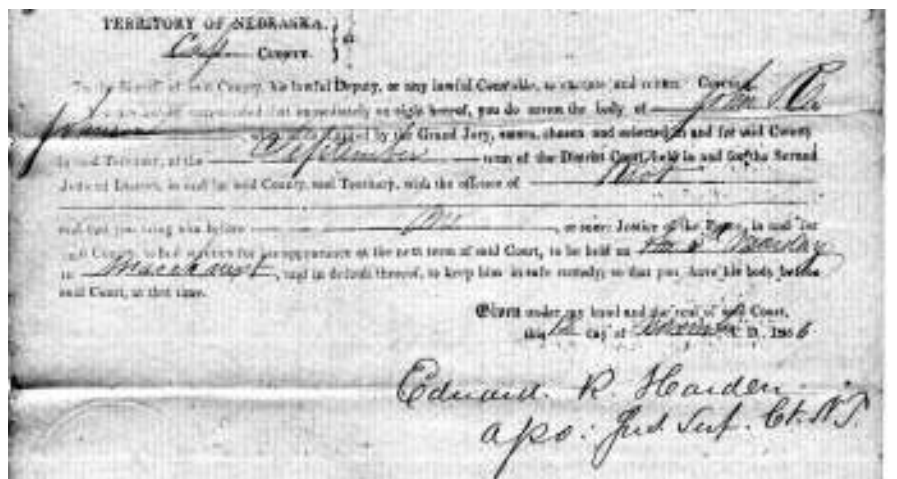 TERRITORY OF NEBRASKA. }
Cass County. } ss
To the Sheriff of said County, his lawful Deputy, or any lawful Constable, to execute and return:
immediately on sight hereof, you do arrest the body of John R
Johnson who charged by the Grand Jury, sworn, chosen and selected in and for said County
and Territory, at the September term of the District Court, held in and for the Second
Judicial District, in and for said County, and Territory, with the offence of Riot
and that you bring him before me, or some Justice of the Peace, in and for
said County, to his appearance at the next term of said Court, to be held on Monday
in March next, and in default thereof, to keep him in safe custody, so that you have his body before
said Court, at that time.
Given under my hand and the seal of said Court,
this day of A. D. 1856
Edward. R. Harden.
apo: Jud Sup. Ct. N.T.